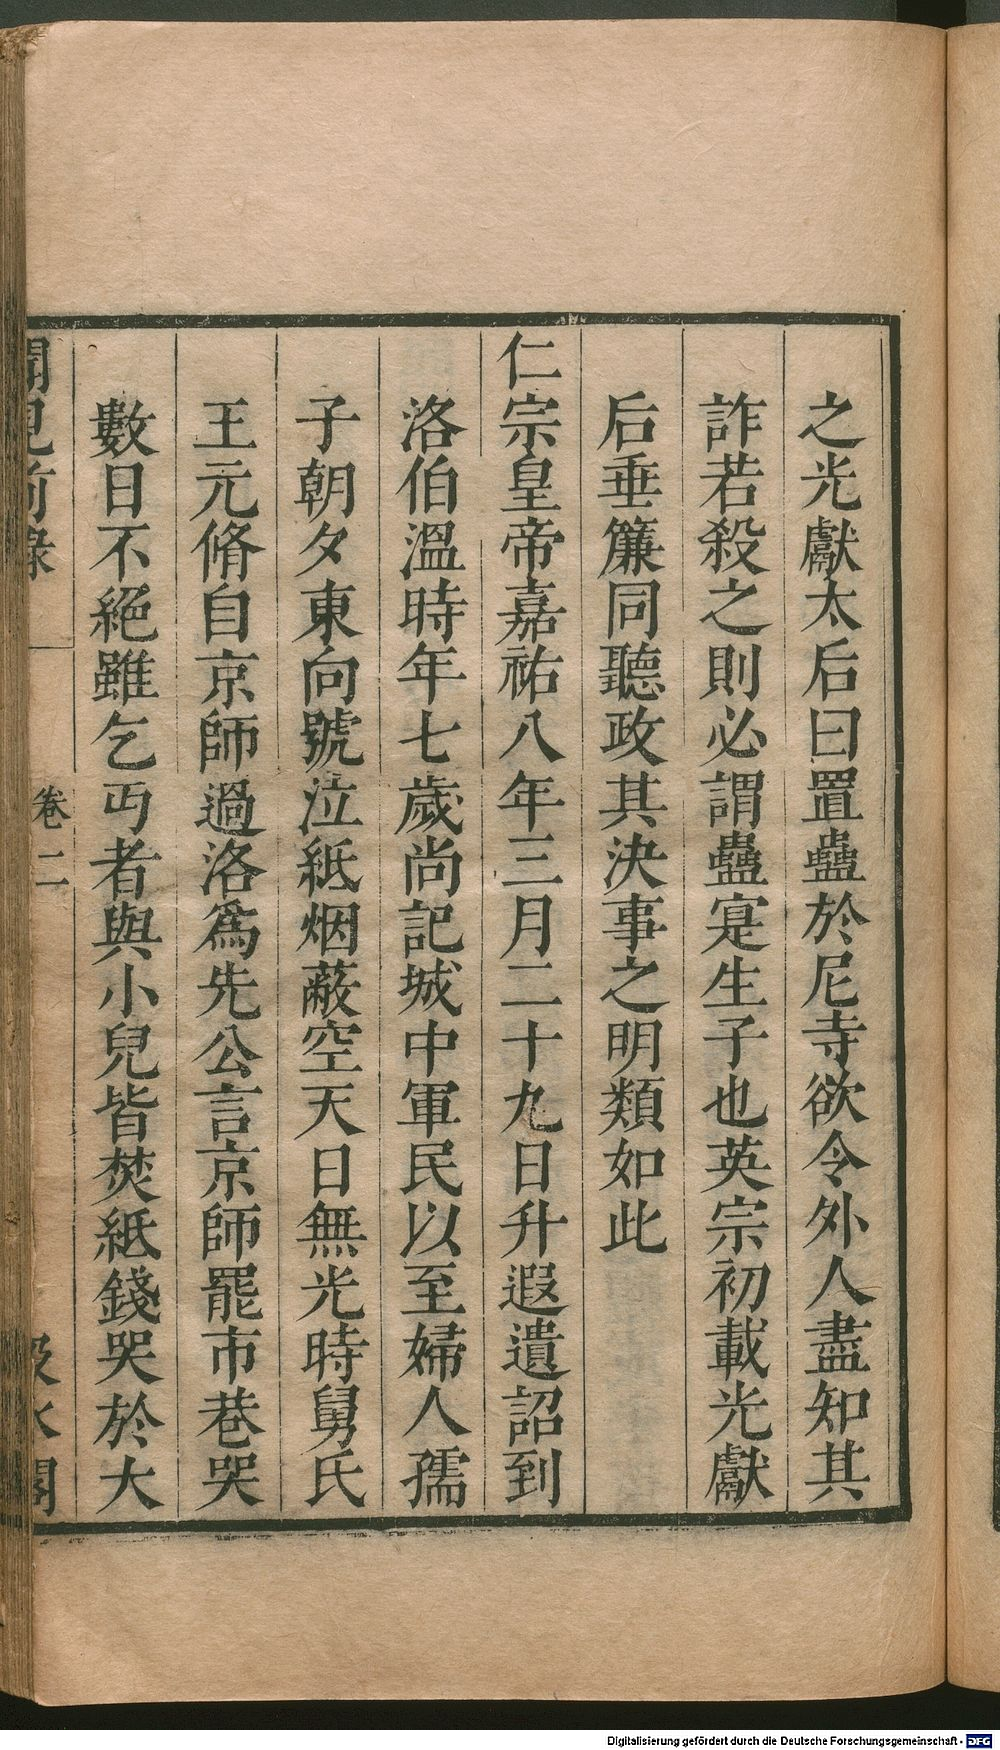 之光獻太后曰置蠱於尼寺欲令外人盡知其
詐若殺之則必謂蠱寔生子也英宗初載光獻
后垂簾同聽政其決事之明類如此
仁宗皇帝嘉祐八年三月二十九日升遐遺詔到
洛伯溫時年七歲尚記城中軍民以至婦人孺
子朝夕東向號泣紙烟蔽空天日無光時舅氏
王元脩自京師過洛爲先公言京師罷市巷哭
數日不絕雖乞丐者與小兒皆焚紙錢哭於大
聞見前錄 卷二 汲古閣
Digitalisierung gefördert durch die Deutsche Forschungsgemeinschaft - DFG